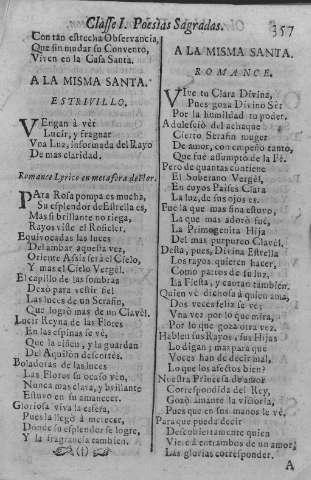 Classe I. Poesias Sagradas.
357
Con tan estrecha Observancia,
Que sin mudar su Convento,
Viven en la Casa Santa.
A LA MISMA SANTA.
ESTRIVILLO.
VEngan à vèr
Lucir, y fragnar
Vna Luz, informada del Rayo
De mas claridad.
Romance Lyrico en metafora de Flor.
PAra Rosa pompa es mucha,
Su esplendor de Estrella es,
Mas si brillante no riega,
Rayos viste el Rosicler.
Equivocadas las luces
Del ambar aquesta vez,
Oriente Assia serà el Cielo,
Y mas el Cielo Vergèl.
El capillo de las sombras
Dexò para vestir
Las luces de un Serafin,
Que logrò mas de un Clavèl.
Lucir Reyna de las Flores
En las espinas se vè,
Que la ciñen, y la guardan
Del Aquilòn descortès.
Boladoras de las luces
Las Flores su ocaso vèn,
Nunca mas clara, y brillante
Estuvo en su amanecer.
Gloriosa viva la esfera,
Pues la llegò à merecer,
Donde su esplendor se logre,
Y la fragrancia tambien.
A LA MISMA SANTA.
ROMANCE.
VIve tu Clara Divina,
Pues goza Divino Sèr
Por la humildad tu poder.
Adoleciò del achaque
Cierto Serafin muger
De amor, con empeño tanto,
Que fuè assumpto de la Fè.
Pero de quantas contiene
El Soberano Vergèl,
En cuyos Paises Clara
La luz, de sus ojos es.
Fue la que mas fina estuvo,
La que mas adorò fuè,
La Primogenita Hija
Del mas purpureo Clavèl.
Desta, pues, Divina Estrella
Los rayos quieren hacer,
Como partos de su luz,
La Fiesta, y cantan tambien.
Quien vè dichosa à quien ama,
Dos veces feliz se vè;
Vna vez por lo que mira,
Por lo que goza otra vez.
Hablen sus Rayos, sus Hijas
Lo digan; mas para què
Voces han de decir mal,
Lo que los afectos bien?
Nuestra Princesa de amor
Correspondida del Rey,
Gozò amante la victoria,
Pues que en sus manos le vè.
Para que pueda decir
Descubiertamente quien
Viene à entrambos de un amor,
Las glorias corresponder.
A